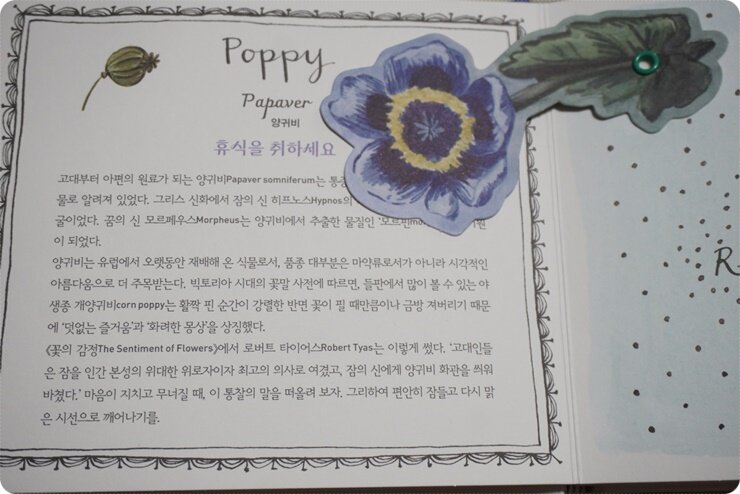 Poppy
Papaver
양귀비
휴식을 취하세요
고대부터 아편의 원료가 되는 양귀비Papaver somniferum는 통증
물로 알려져 있었다. 그리스 신화에서 잠의 신 히프노스Hypnos의
굴이었다. 꿈의 신 모르페우스Morpheus는 양귀비에서 추출한 물질인 '모르핀mo
이 되었다.
양귀비는 유럽에서 오랫동안 재배해 온 식물로서, 품종 대부분은 마약류로서가 아니라 시각적인
아름다움으로 더 주목받는다. 빅토리아 시대의 꽃말 사전에 따르면, 들판에서 많이 볼 수 있는 야
생종 개양귀비corn poppy는 활짝 핀 순간이 강렬한 반면 꽃이 필 때만큼이나 금방 져버리기 때문
에 '덧없는 즐거움'과 '화려한 몽상'을 상징했다.
《꽃의 감정The Sentiment of Flowers》에서 로버트 타이어스Robert Tyas는 이렇게 썼다. '고대인들
은 잠을 인간 본성의 위대한 위로자이자 최고의 의사로 여겼고, 잠의 신에게 양귀비 화관을 씌워
바쳤다.' 마음이 지치고 무너질 때, 이 통찰의 말을 떠올려 보자. 그리하여 편안히 잠들고 다시 맑
은 시선으로 깨어나기를.
R